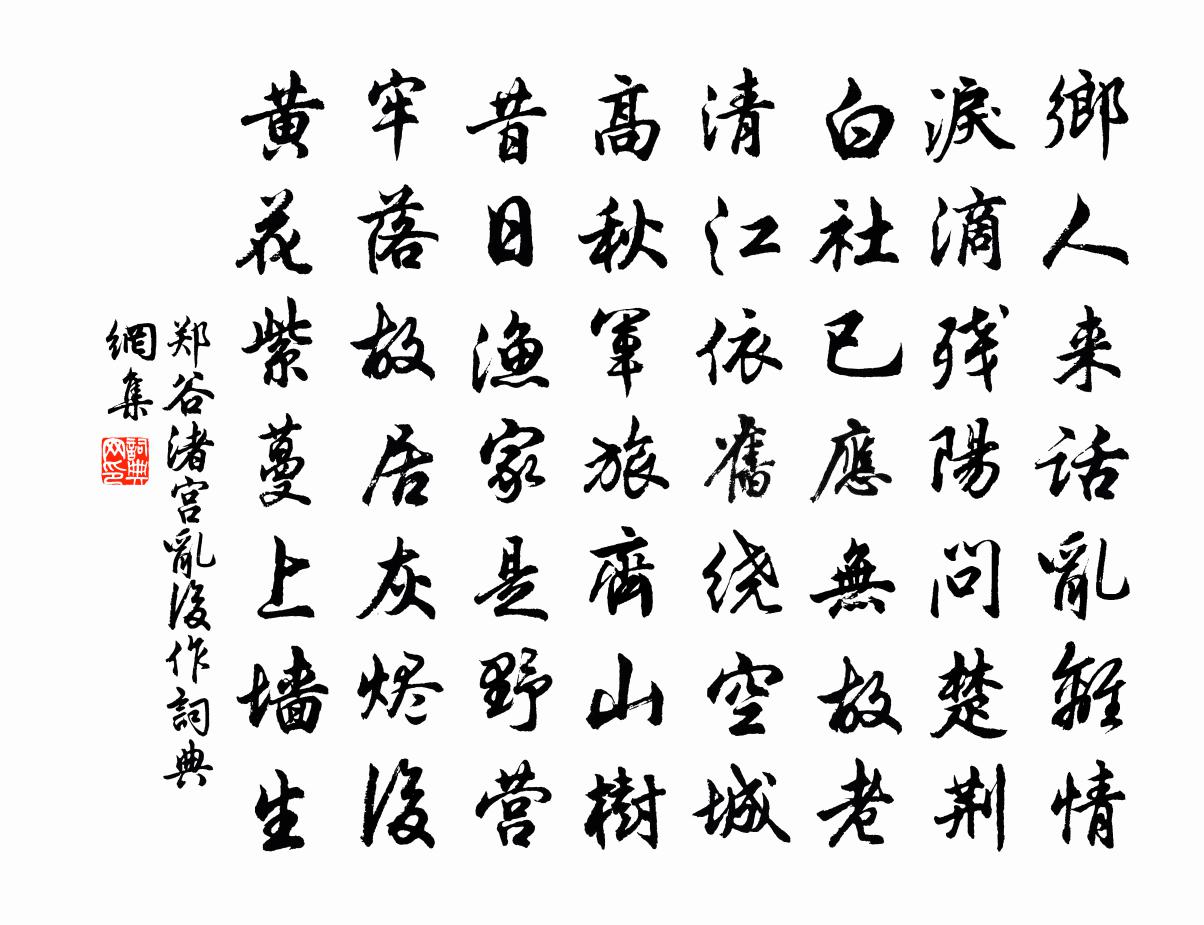 鄉人来话亂離情
淚滴残陽問楚荆
白社已應無故老
清江依舊绕空城
高秋軍旅齊山樹
昔日漁家是野营
牢落故居灰烬後
黄花紫蔓上墙生
郑谷渚宫亂後作詞典
網集
詞典
网印